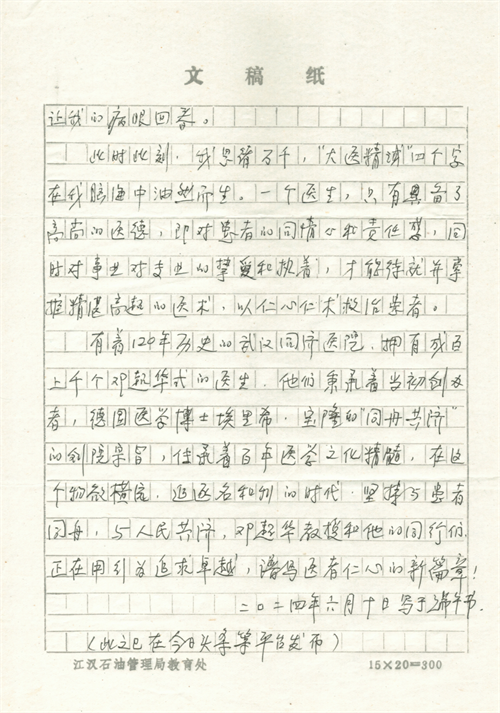 文稿纸
让我的病眼回春。
此时此刻，我思绪万千，“大医精诚”四个字
在我脑海中油然而生。一个医生，只有具备了
高尚的医德，即对患者的同情心和责任感，同
时对事业对专业的挚爱和执着，才能铸就并掌
握精湛高超的医术，以仁心仁术救治患者。
有着124年历史的武汉同济医院，拥有成百
上千个邓起华式的医生，他们秉承着当初创办
者，德国医学博士埃里希·宝隆的“同舟共济”
的创院宗旨，传承着百年医学文化精髓，在这
个物欲横流，追逐名和利的时代，坚持与患者
同舟，与人民共济，邓起华教授和他的同行们，
正在用引为追求卓越，谱写医者仁心的新篇章！
二〇二四年六月十日写于端午节
（此文已在今日头条等平台发布）
江汉石油管理局教育处 15×20=300